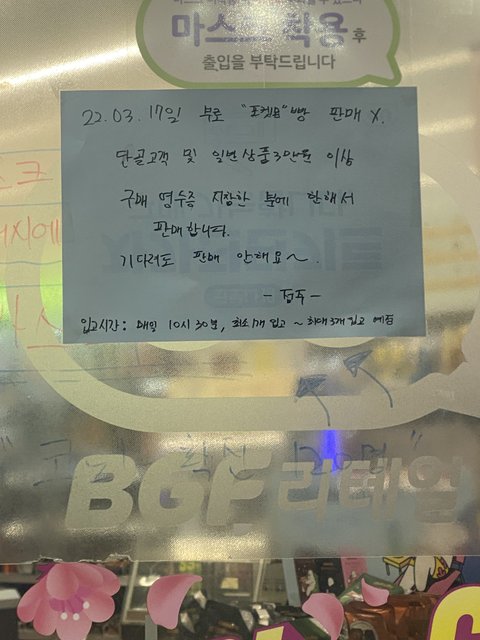 마스크 착용 후
출입을 부탁드립니다
22.03.17일 부로 "포켓몬"빵 판매 X.
단골고객 및 일반상품3만원 이상
구매 영수증 지참한 분에 한해서
판매합니다.
기다려도 판매 안해요~.
- 점주 -
입고시간: 매일 10시 30분, 최소1개 입고 ~ 최대3개 입고 예정
BGF리테일